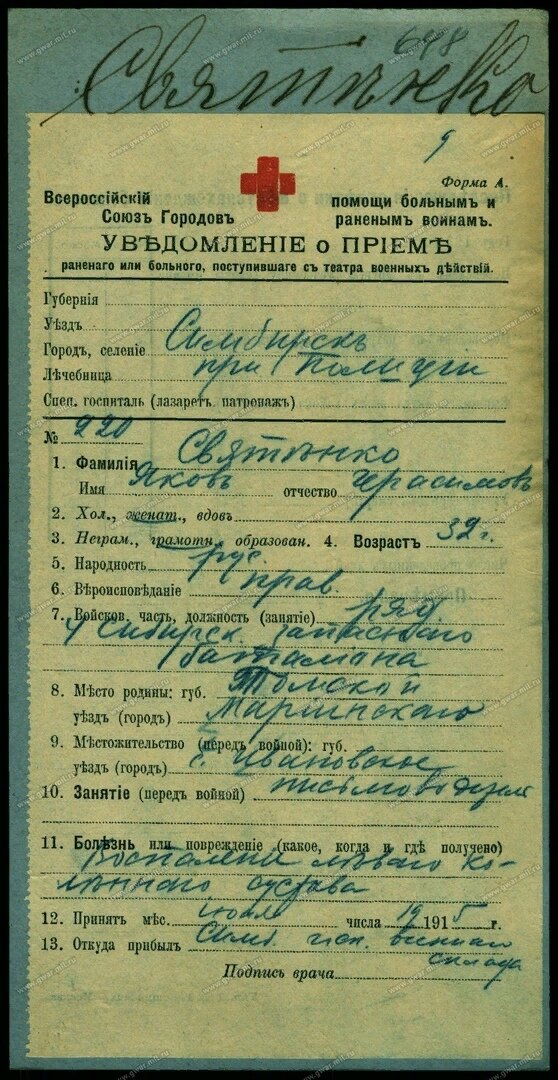 698
Святѣнко
9
Форма А.
Всероссійскій Союзъ Городовъ
помощи больнымъ и раненымъ воинамъ.
УВѢДОМЛЕНІЕ о ПРІЕМѢ
раненаго или больного, поступившаго съ театра военныхъ дѣйствій.
Губернія
Уѣздъ
Городъ, селеніе Симбирскъ
Лѣчебница при Полиціи
Спец. госпиталь (лазаретъ, патронажъ)
№ 220
1. Фамилія Святѣнко
Имя Яковъ отчество Герасимовъ
2. Хол., женат., вдовъ
3. Неграм., грамотн., образован. 4. Возрастъ 32 г.
5. Народность рус.
6. Вѣроисповѣданіе прав.
7. Войсков. часть, должность (занятіе) ряд.
Сибирск. запаснаго
баталіона
8. Мѣсто родины: губ. Томской
уѣздъ (городъ) Маріинскаго
9. Мѣстожительство (передъ войной): губ.
уѣздъ (городъ) с. Ивановское
10. Занятіе (передъ войной) письмоводитель
11. Болѣзнь или поврежденіе (какое, когда и гдѣ получено)
Воспаленіе лѣваго ко-
лѣннаго сустава
12. Принятъ мѣс. іюля числа 19 1915 г.
13. Откуда прибылъ Симб. госп. военнаго
склада
Подпись врача
www.gwar.mil.ru